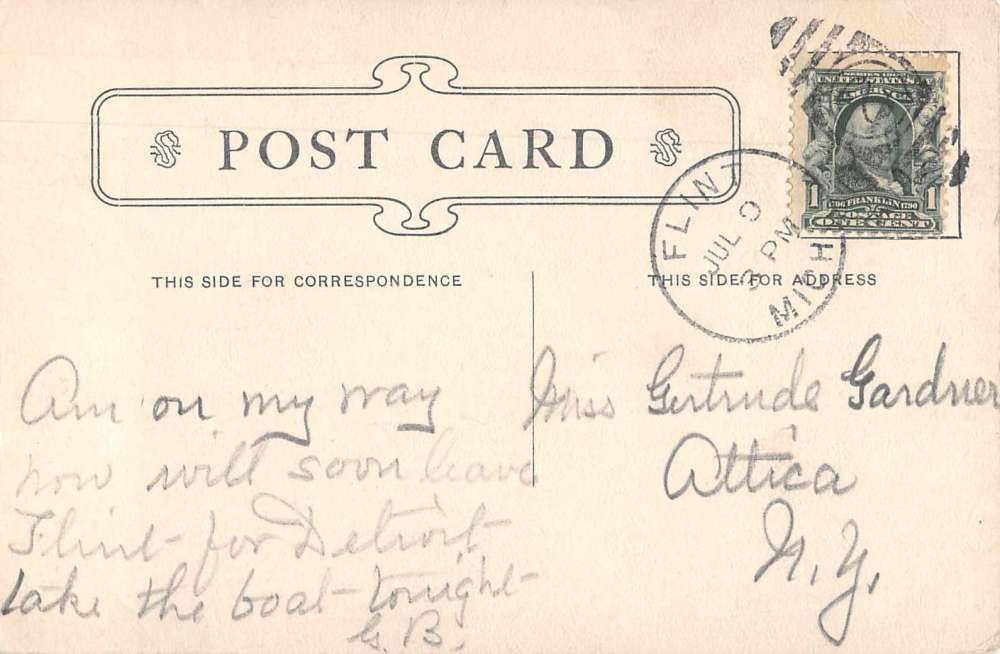 POST CARD
SERIES 1902
1 1
1706 FRANKLIN 1790
POSTAGE
ONE CENT
FLINT
JUL 9
3 PM
MICH
THIS SIDE FOR CORRESPONDENCE
THIS SIDE FOR ADDRESS
Am on my way
now will soon leave
Flint for Detroit
take the boat tonight
G. B.
Miss Gertrude Gardner
Attica
N. Y.